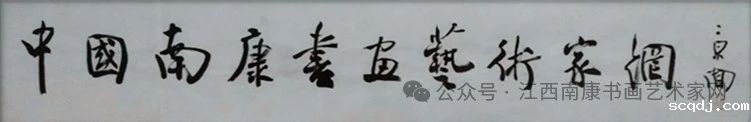 中國南康書画藝術家網
公众号·江西南康书画艺术家网
scqdj.com